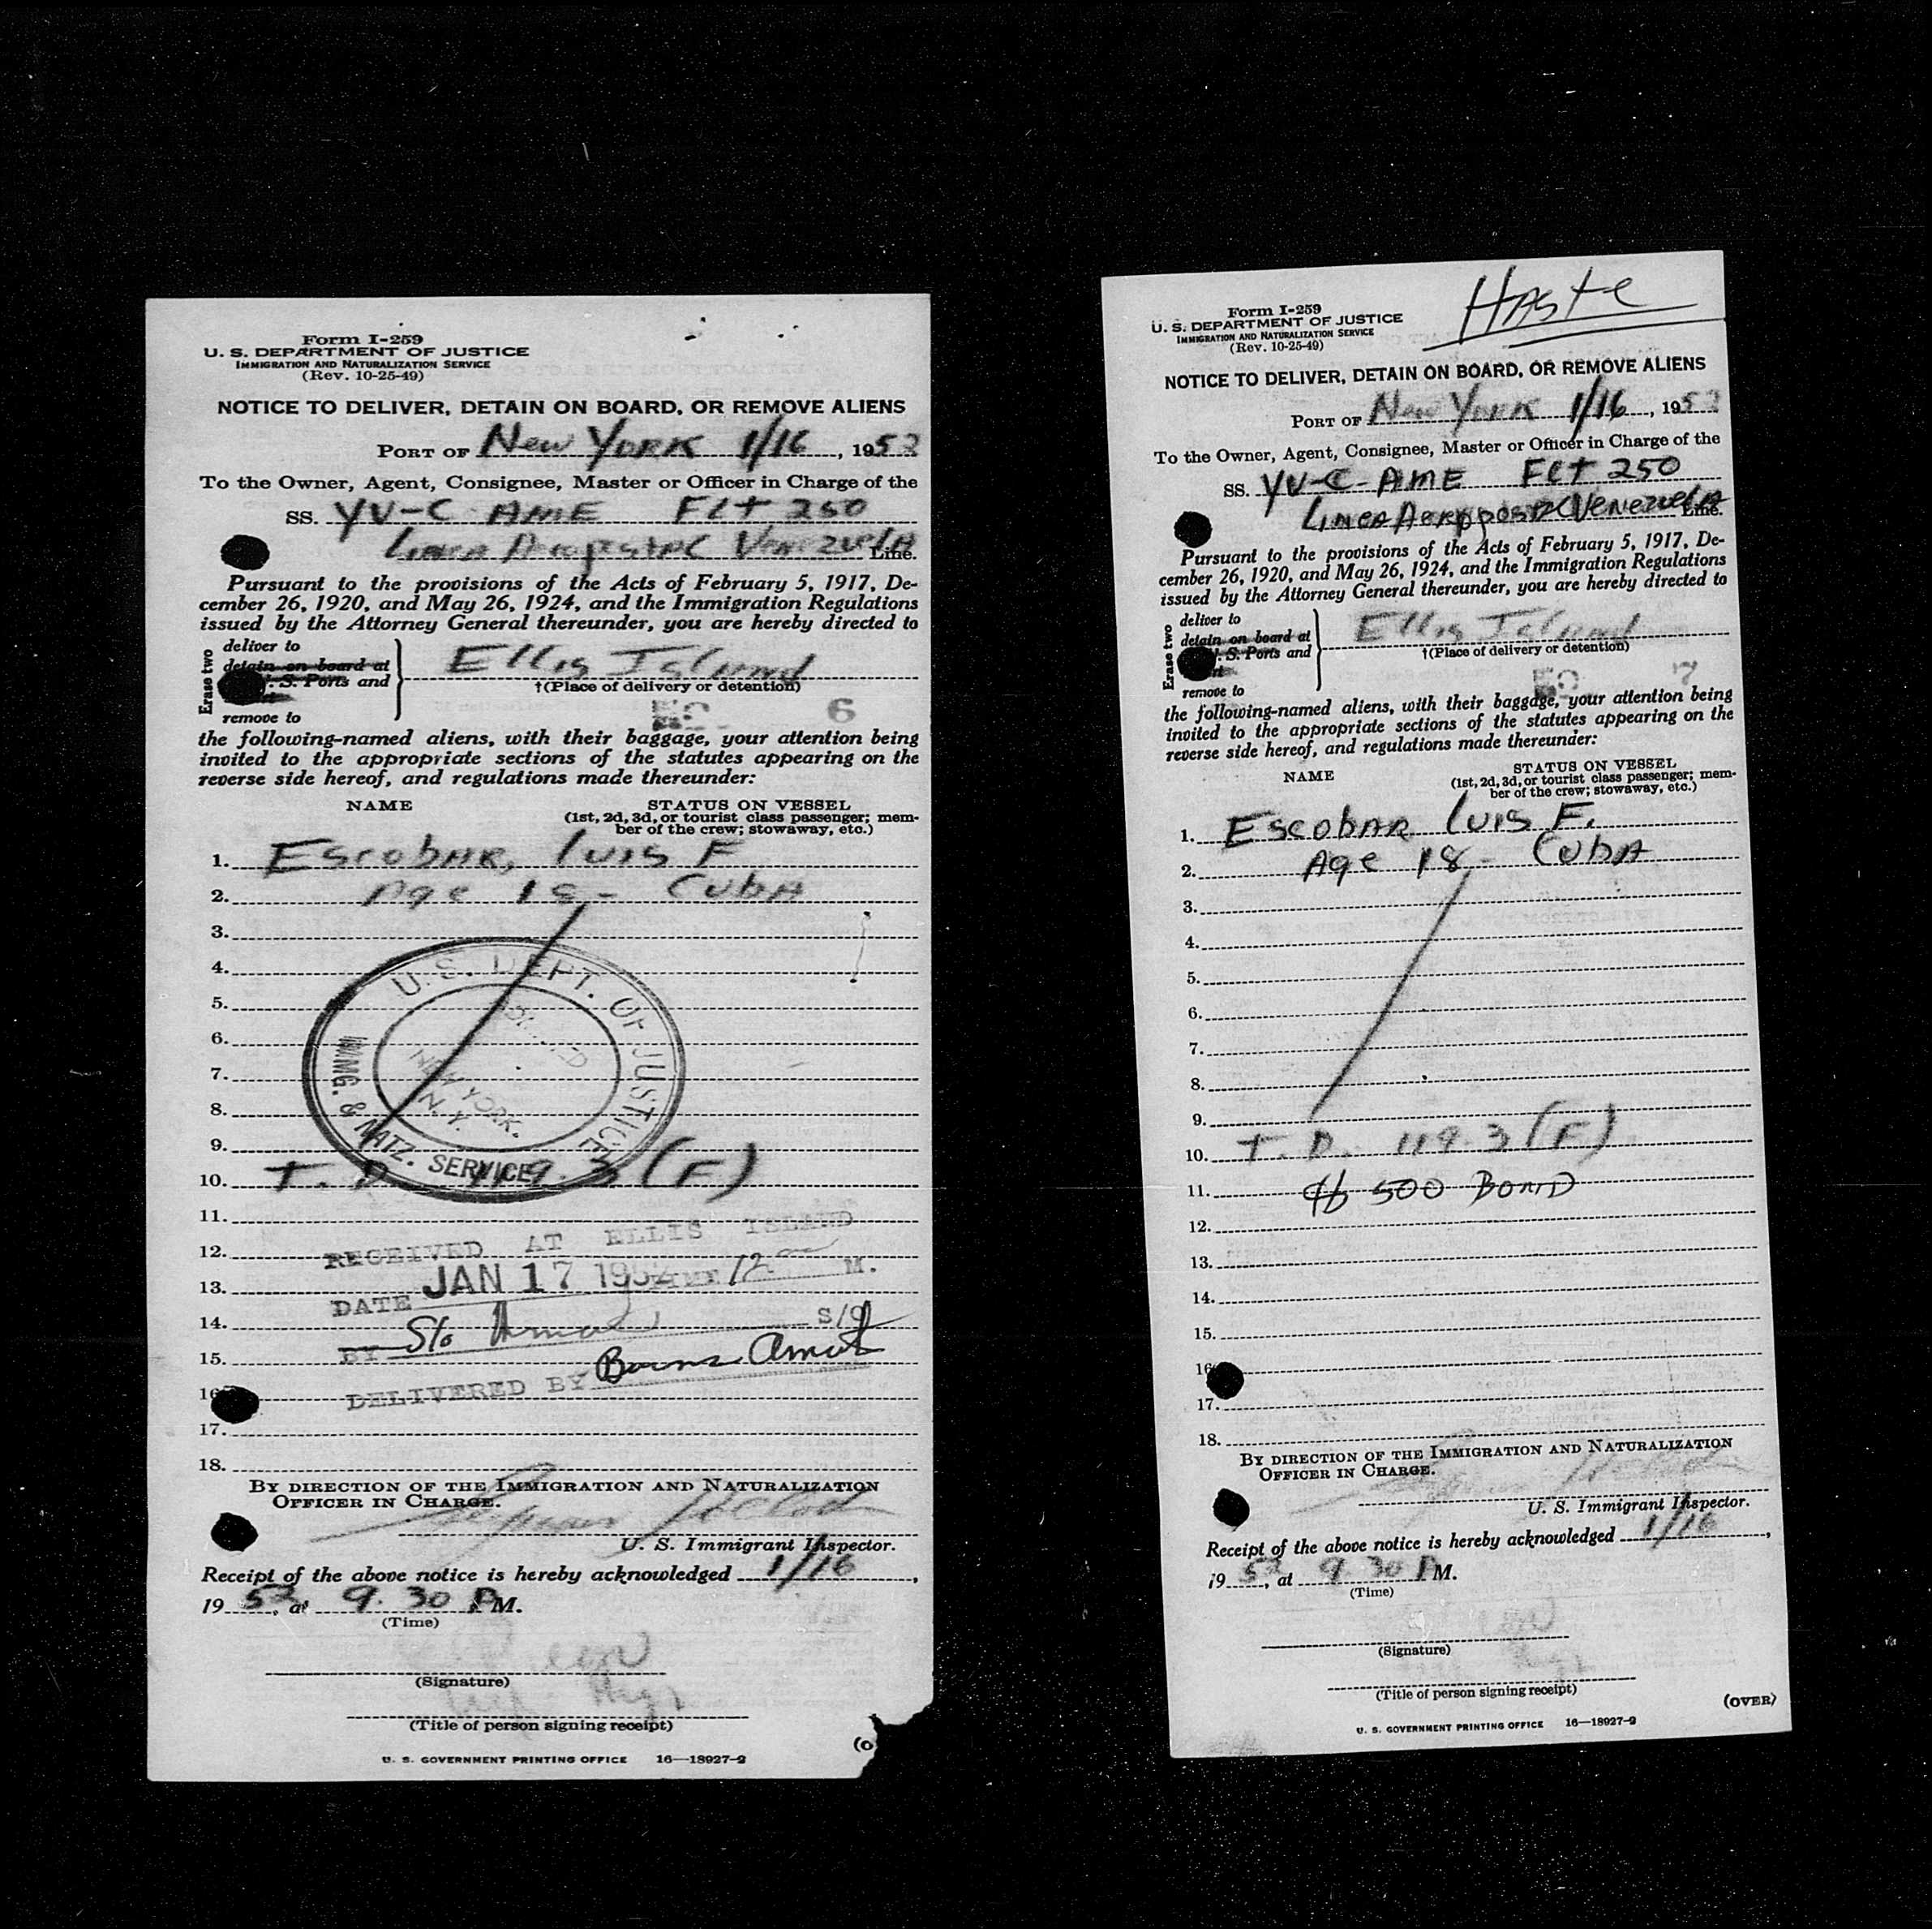 Form I-259
U. S. DEPARTMENT OF JUSTICE
IMMIGRATION AND NATURALIZATION SERVICE
(Rev. 10-25-49)
NOTICE TO DELIVER, DETAIN ON BOARD, OR REMOVE ALIENS
PORT OF New York 1/16, 1952
To the Owner, Agent, Consignee, Master or Officer in Charge of the
SS. YV-C AME FLT 250
Linea Aeropostal Venezuela Line.
Pursuant to the provisions of the Acts of February 5, 1917, De-
cember 26, 1920, and May 26, 1924, and the Immigration Regulations
issued by the Attorney General thereunder, you are hereby directed to
Erase two
deliver to
detain on board at
. S. Ports and
remove to
Ellis Island
†(Place of delivery or detention)
6
the following-named aliens, with their baggage, your attention being
invited to the appropriate sections of the statutes appearing on the
reverse side hereof, and regulations made thereunder:
NAME STATUS ON VESSEL
(1st, 2d, 3d, or tourist class passenger; mem-
ber of the crew; stowaway, etc.)
1. Escobar, Luis F
2. Age 18 - Cuba
3.
4.
5.
6.
7.
8.
9.
10. T. D. 119.3 (F)
11.
12.
13.
14.
15.
16
17.
18.
U.S. DEPT. OF JUSTICE
IMMG. & NATZ. SERVICE
NEW YORK.
N. Y.
RECEIVED AT ELLIS ISLAND
DATE JAN 17 1952 TIME 12 M.
BY S/o S/O
DELIVERED BY
BY DIRECTION OF THE IMMIGRATION AND NATURALIZATION
OFFICER IN CHARGE.
U. S. Immigrant Inspector.
Receipt of the above notice is hereby acknowledged 1/16,
1952, at 9.30 PM.
(Time)
(Signature)
(Title of person signing receipt)
U. S. GOVERNMENT PRINTING OFFICE 16—18927-2
Haste
Form I-259
U. S. DEPARTMENT OF JUSTICE
IMMIGRATION AND NATURALIZATION SERVICE
(Rev. 10-25-49)
NOTICE TO DELIVER, DETAIN ON BOARD, OR REMOVE ALIENS
PORT OF New York 1/16, 1952
To the Owner, Agent, Consignee, Master or Officer in Charge of the
SS. YV-C-AME FLT 250
Linea Aeropostal Venezuela Line.
Pursuant to the provisions of the Acts of February 5, 1917, De-
cember 26, 1920, and May 26, 1924, and the Immigration Regulations
issued by the Attorney General thereunder, you are hereby directed to
Erase two
deliver to
detain on board at
. S. Ports and
remove to
Ellis Island
†(Place of delivery or detention)
7
the following-named aliens, with their baggage, your attention being
invited to the appropriate sections of the statutes appearing on the
reverse side hereof, and regulations made thereunder:
NAME STATUS ON VESSEL
(1st, 2d, 3d, or tourist class passenger; mem-
ber of the crew; stowaway, etc.)
1. Escobar Luis F.
2. Age 18 - Cuba
3.
4.
5.
6.
7.
8.
9.
10. T. D. 119.3 (F)
11. $500 Bond
12.
13.
14.
15.
16
17.
18.
BY DIRECTION OF THE IMMIGRATION AND NATURALIZATION
OFFICER IN CHARGE.
U. S. Immigrant Inspector.
Receipt of the above notice is hereby acknowledged 1/16,
1952, at 9.30 PM.
(Time)
(Signature)
(Title of person signing receipt)
(OVER)
U. S. GOVERNMENT PRINTING OFFICE 16—18927-2